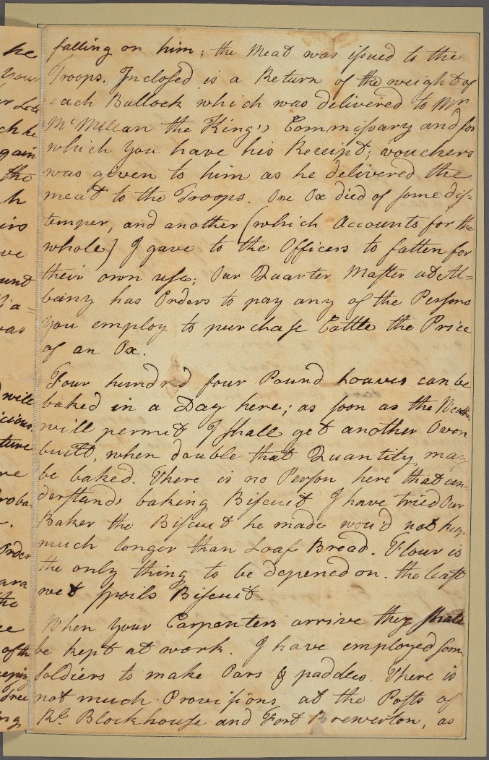 falling on him; the Meat was issued to the
Troops. Inclosed is a Return of the weight of
each Bullock which was delivered to Mr
McMillan the King's Commissary and for
which you have his Receipt; vouchers
was given to him as he delivered the
meat to the Troops. One Ox died of some dis-
temper, and another (which Accounts for the
whole) I gave to the Officers to fatten for
their own use; Our Quarter Master at Al-
bany has Orders to pay any of the Persons
you employ to purchase Cattle the Price
of an Ox.
Four hundred four Pound loaves can be
baked in a Day here; as soon as the
will permit I shall get another Oven
built, when double that Quantity may
be baked. There is no Person here that un-
derstands baking Biscuit I have tried Our
Baker the Biscuit he made would not keep
much longer than Loaf Bread. Flour is
the only thing to be depened on. the least
wet spoils Biscuit.
When your Carpenters arrive they shall
be kept at work. I have employed som
Soldiers to make Oars & paddles. There is
not much Provisions at the Posts of
Rl. Blockhouse and Fort Brewerton, as